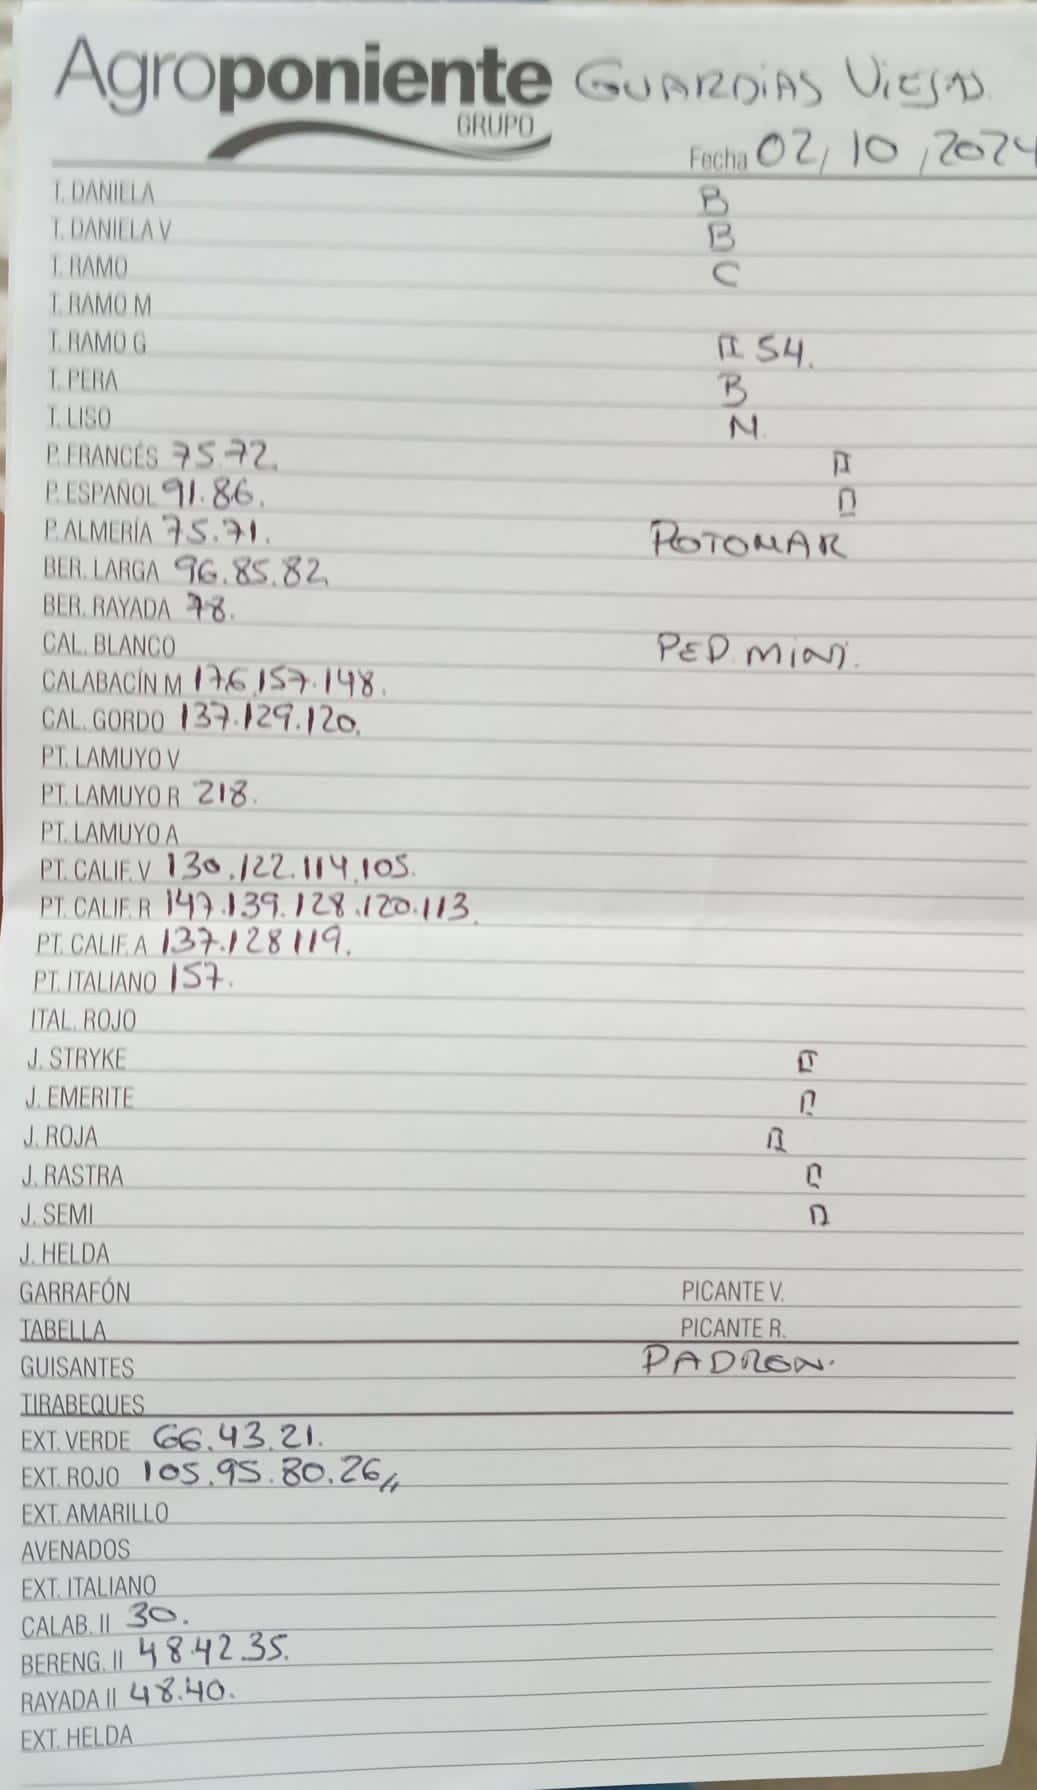 Agroponiente GUARDIAS VIEJAS
GRUPO
Fecha 02, 10, 2024
T. DANIELA B
T. DANIELA V B
T. RAMO C
T. RAMO M
T. RAMO G II 54.
T. PERA B
T. LISO N.
P. FRANCÉS 75.72.
P. ESPAÑOL 91.86.
P. ALMERÍA 75.71. ROTOMAR
BER. LARGA 96.85.82.
BER. RAYADA 78.
CAL. BLANCO PEP. MINI.
CALABACÍN M 176.157.148.
CAL. GORDO 137.129.120.
PT. LAMUYO V
PT. LAMUYO R 218.
PT. LAMUYO A
PT. CALIF. V 130.122.114.105.
PT. CALIF. R 147.139.128.120.113.
PT. CALIF. A 137.128 119.
PT. ITALIANO 157.
ITAL. ROJO
J. STRYKE
J. EMERITE
J. ROJA
J. RASTRA
J. SEMI
J. HELDA
GARRAFÓN PICANTE V.
TABELLA PICANTE R.
GUISANTES PADRON.
TIRABEQUES
EXT. VERDE 66.43.21.
EXT. ROJO 105.95.80.26,,
EXT. AMARILLO
AVENADOS
EXT. ITALIANO
CALAB. II 30.
BERENG. II 48.42.35.
RAYADA II 48.40.
EXT. HELDA